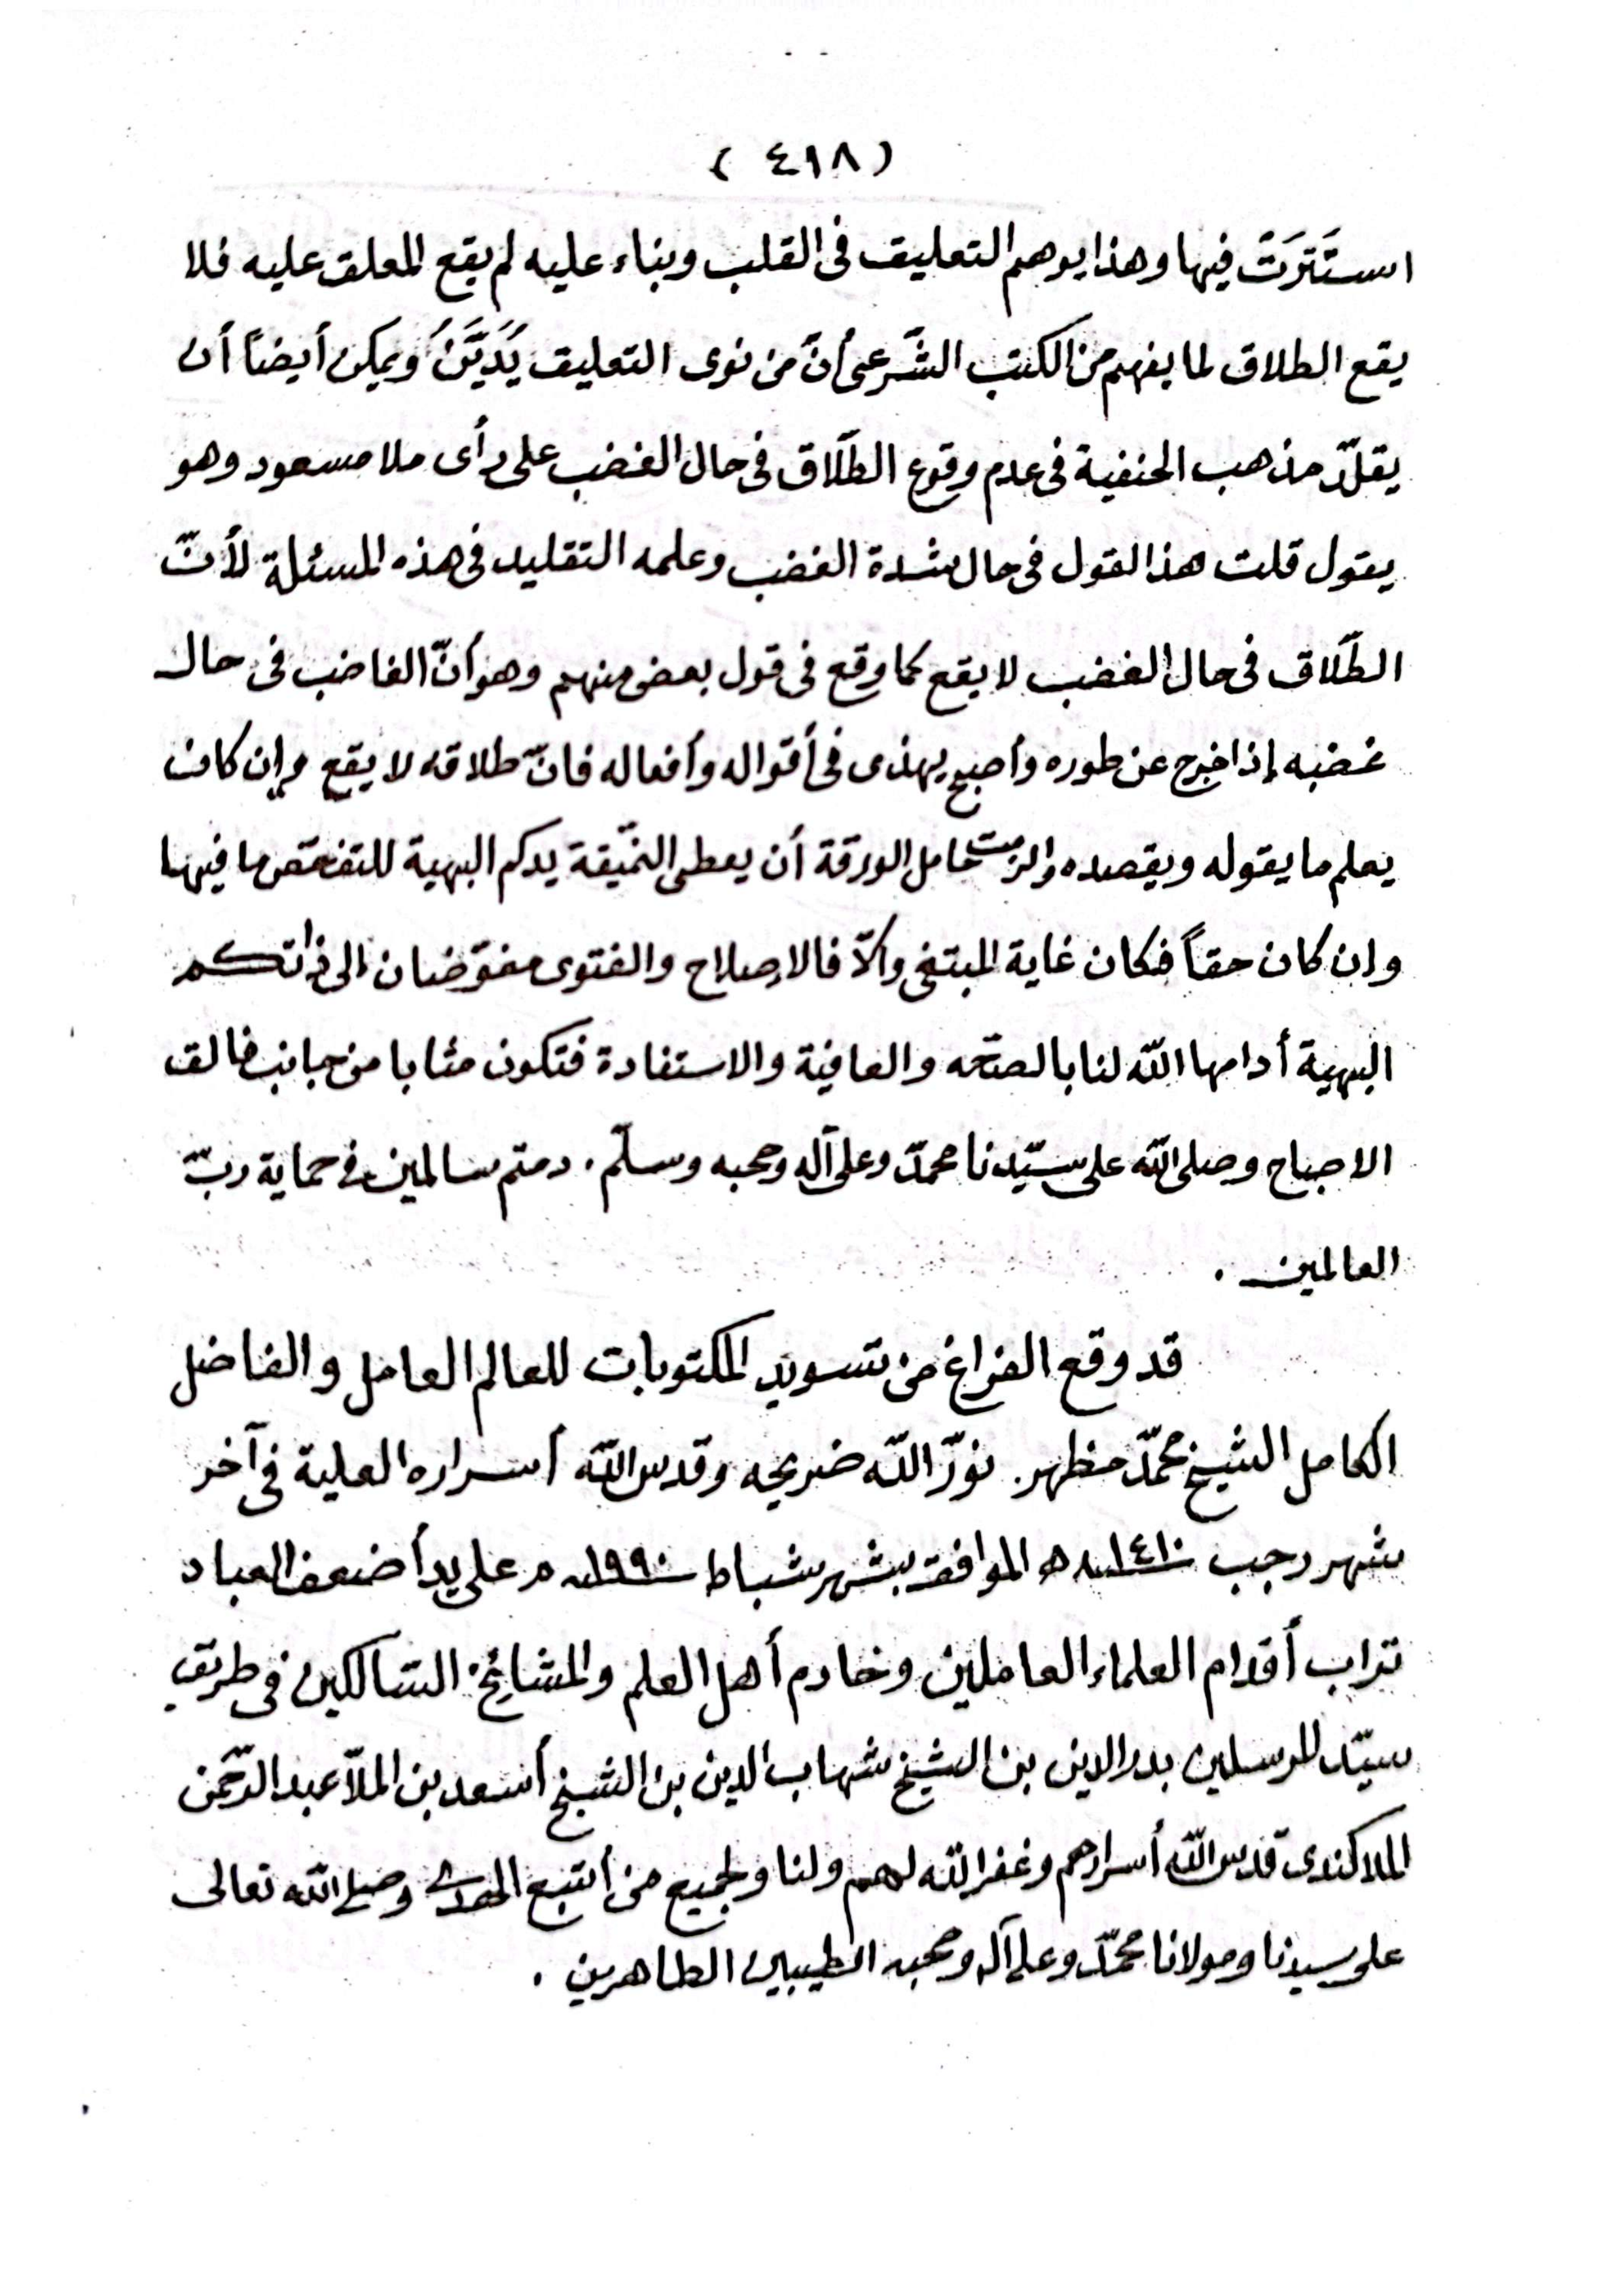 ( ٤١٨ )
استَتَرَتْ فيها وهذا يوهم التعليق فى القلب وبناء عليه لم يقع المعلق عليه فلا
يقع الطلاق لما يفهم من الكتب الشَّرعى أنَّ من نوى التعليق يُدَيَّنُ ويمكن أيضاً أن
يقلّد مذهب الحنفية فى عدم وقوع الطَّلاق فى حال الغضب على رأى ملا مسعود وهو
يقول قلت هذا القول فى حال شدة الغضب وعلمه التقليد فى هذه المسئلة لأنّ
الطَّلاق فى حال الغضب لا يقع كما وقع فى قول بعض منهم وهو أنّ الغاضب فى حال
غضبه إذا خرج عن طوره وأصبح يهذى فى أقواله وأفعاله فانّ طلاقه لا يقع وإن كان
يعلم ما يقوله ويقصده والزمت حامل الورقة أن يعطى النمّيقة يدكم البهية للتفحّص ما فيها
وان كان حقاً فكان غاية المبتغى والاّ فالاصلاح والفتوى مفوّضان إلى ذاتكم
البهية أدامها اللّه لنا بالصحّه والعافية والاستفادة فتكون مثابا من جانب خالق
الاصباح وصلى اللّه على سيّدنا محمدّ وعلى آله وصحبه وسلّم. دمتم سالمين فى حماية ربّ
العالمين .
قد وقع الفراغ من تسويد المكتوبات للعالم العامل والفاضل
الكامل الشيخ محمّد مظهر. نورّ اللّه ضريحه وقدس اللّه أسراره العلية فى آخر
شهر رجب سنة ١٤١٠ ه الموافق بشهر شباط سنة ١٩٩٠ م على يد أضعف العباد
تراب أقدام العلماء العاملين وخادم أهل العلم والمشائخ السّالكين فى طريق
سيّد المرسلين بدر الدين بن الشيخ شهاب الدين بن الشيخ أسعد بن الملاّ عبد الرّحمن
الملاكندى قدس اللّه أسرارهم وغفر اللّه لهم ولنا ولجميع من أتبع الهدى وصلى اللّه تعالى
على سيدنا ومولانا محمّد وعلى آله وصحبه الطيبين الطاهرين .